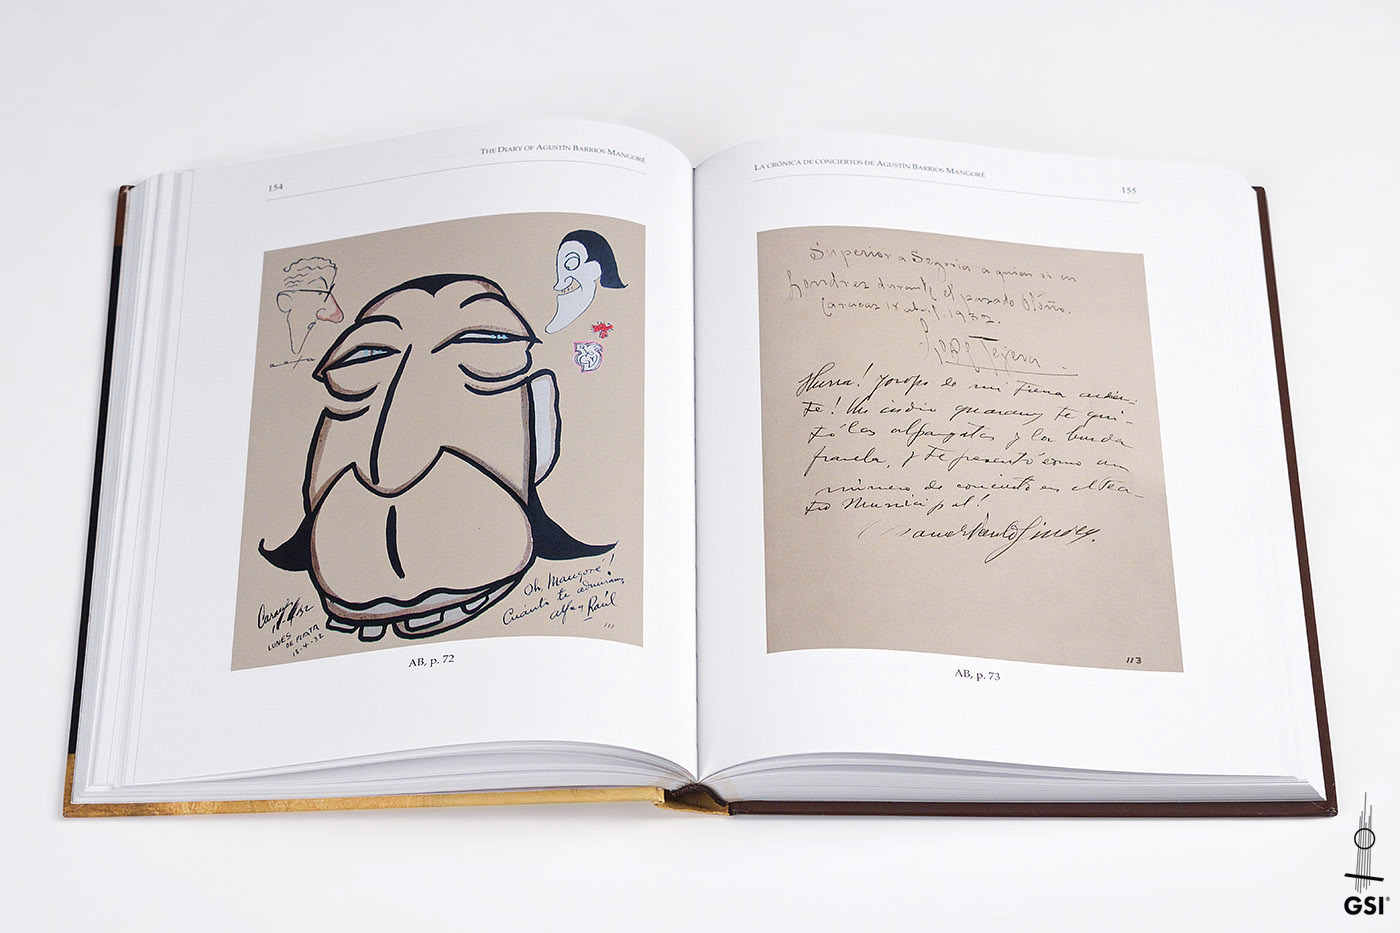 THE DIARY OF AGUSTÍN BARRIOS MANGORÉ
154
aefa
Caracas
32
LUNES
DE PLATA
18-4-32
Oh, Mangoré!
Cuánto te admiran,
alfa y Raúl
111
AB, p. 72
LA CRÓNICA DE CONCIERTOS DE AGUSTÍN BARRIOS MANGORÉ
155
Superior a Segovia a quien oí en
Londres durante el pasado Otoño.
Caracas 18 abril. 1932.
Tejera
Hurra! Joropo de mi tierra ardien-
te! Un indio guarany te qui-
tó las alpargatas y la burda
franela, y te presentó como un
número de concierto en el Tea-
tro Municipal!
113
AB, p. 73
GSI